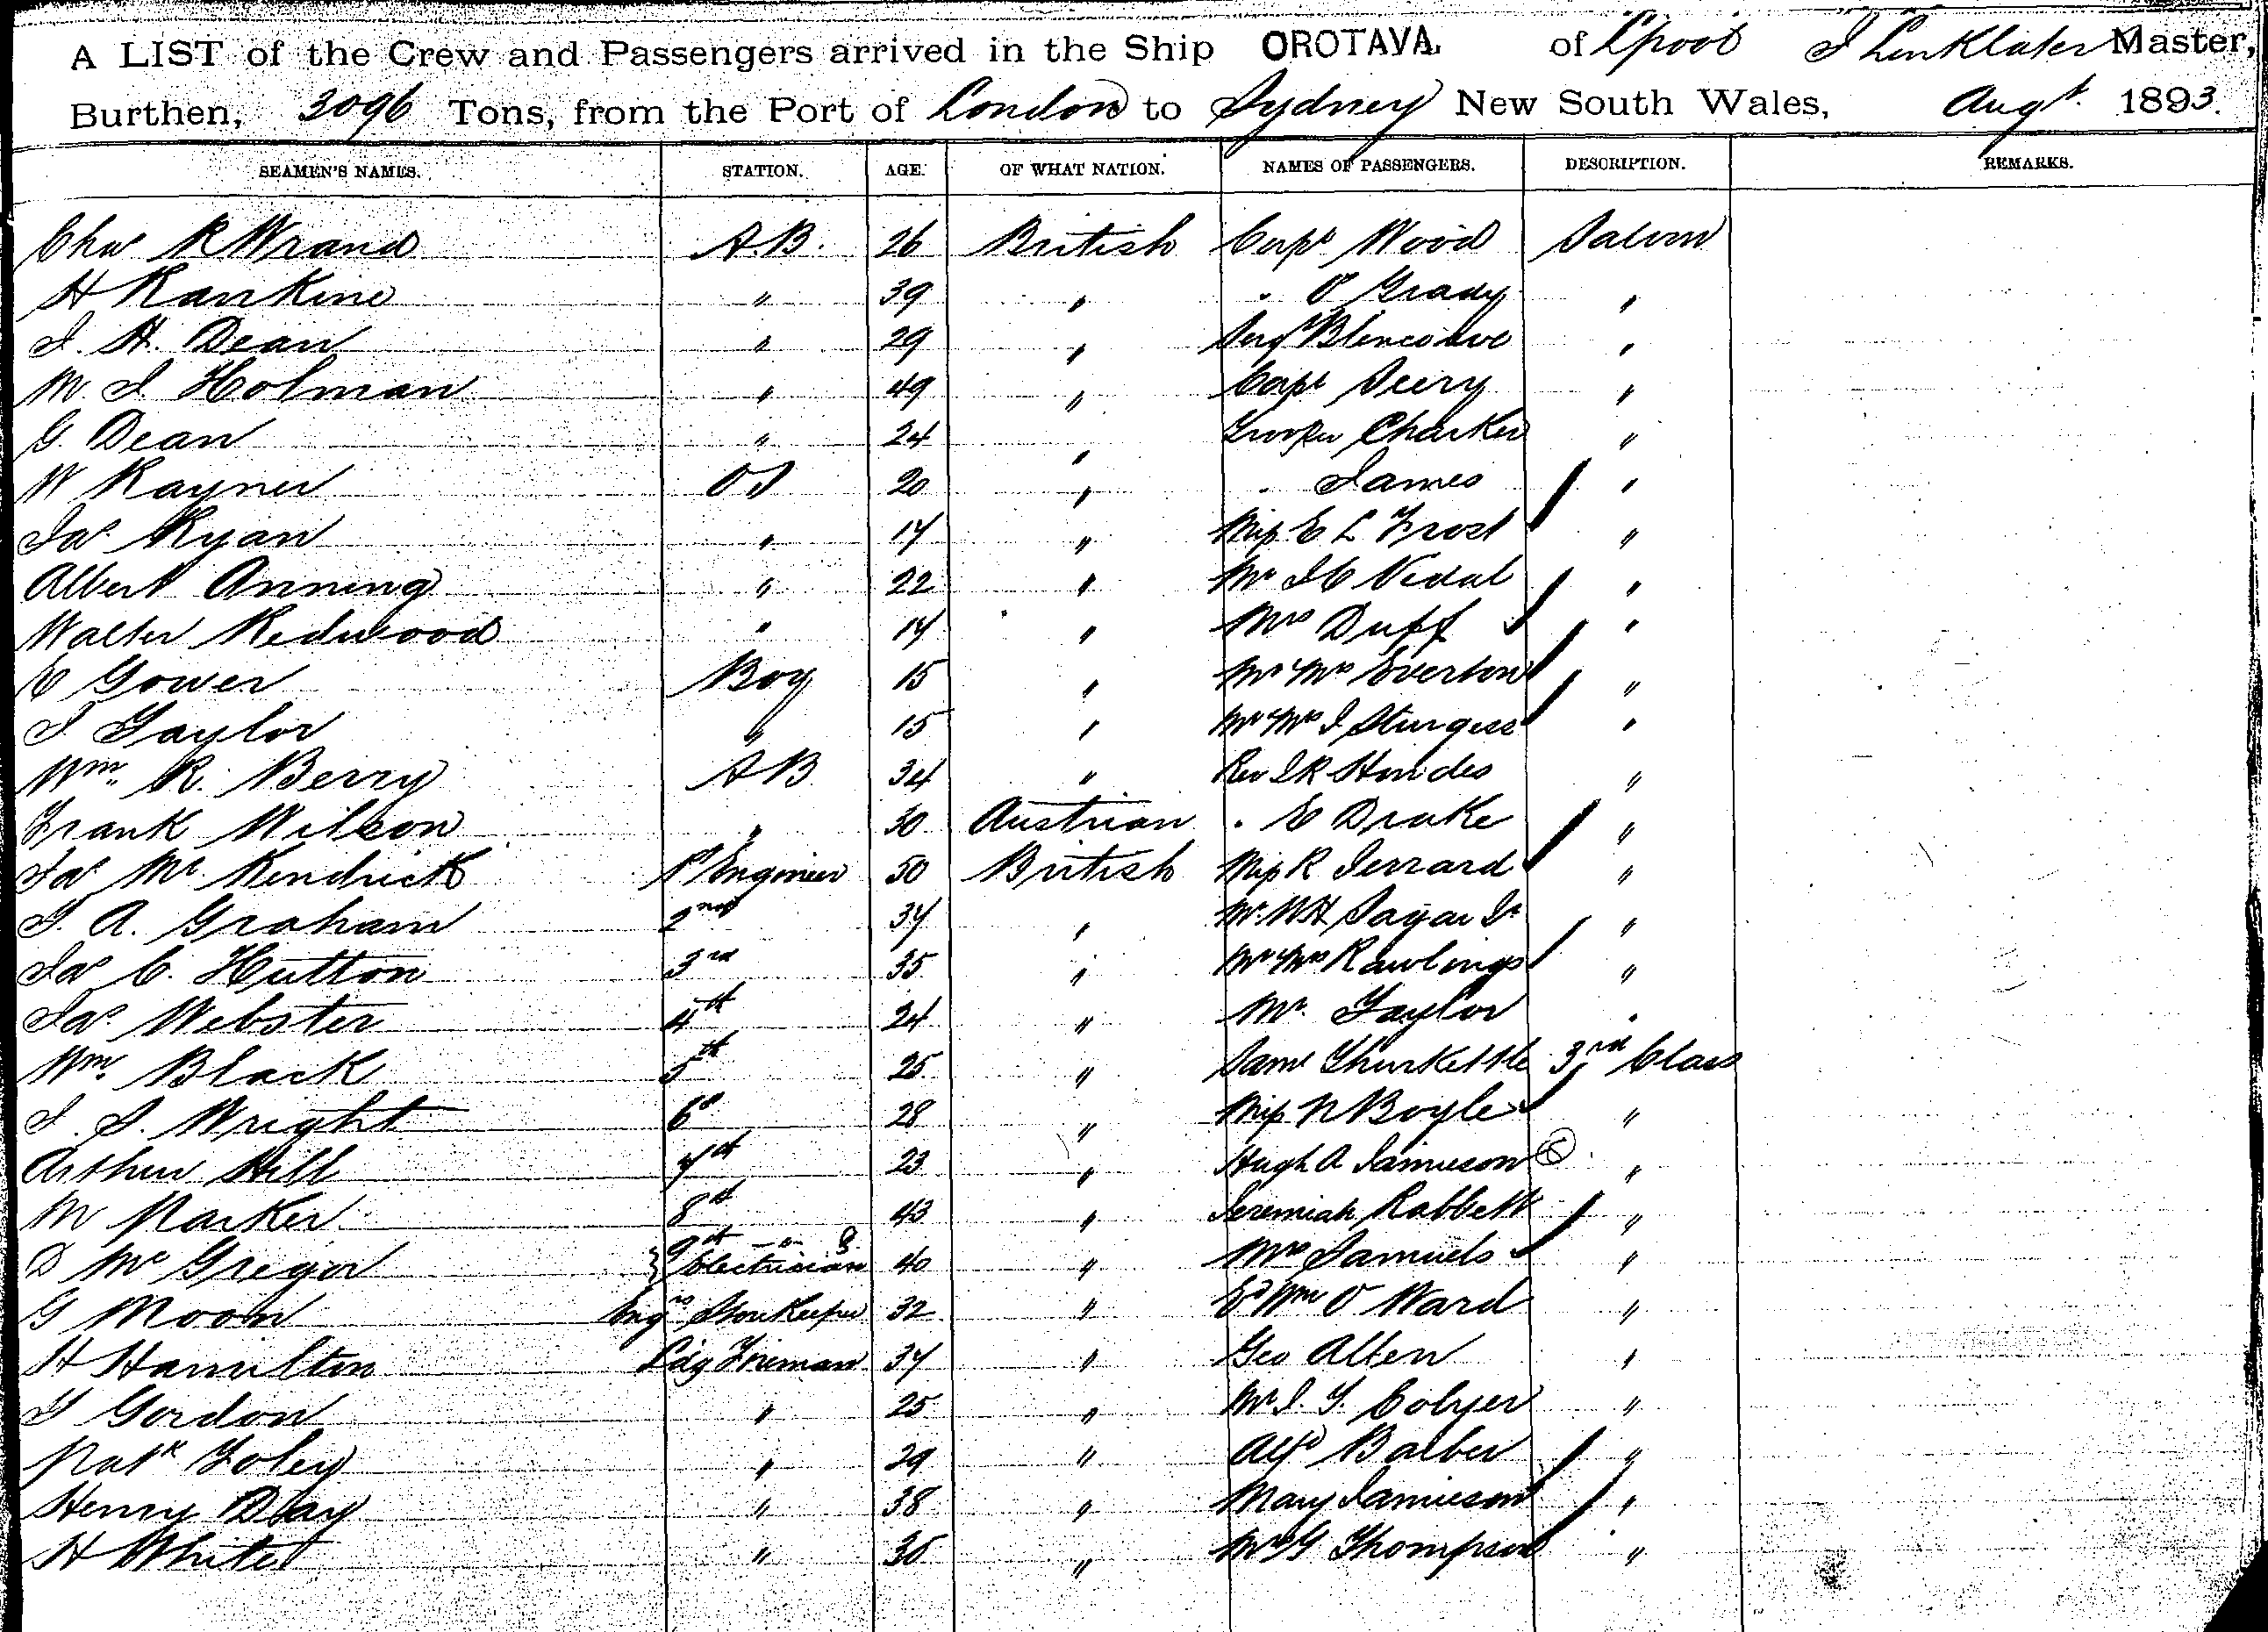 A LIST of the Crew and Passengers arrived in the Ship OROTAVA of L'pool J Linklater Master,
Burthen, 3096 Tons, from the Port of London to Sydney New South Wales, Augt. 1893.
SEAMEN'S NAMES. STATION. AGE. OF WHAT NATION. NAMES OF PASSENGERS. DESCRIPTION. REMARKS.
Chas R Wrand A.B. 26 British Capt Wood Saloon
H Rankine " 39 " " O'Grady "
J. H. Dean " 29 " Sergt Blencowe "
M. J. Holman " 49 " Capt "
G. Dean " 24 " Trooper Charker "
W Rayner OS 20 " " James "
Jas Ryan " 17 " Miss E L Frost "
Albert Anning " 22 " Mr J C Vidal "
Walter Redwood " 17 " Mrs Duff "
E Gower Boy 15 " Mr & Mrs Everton "
J Taylor " 15 " Mr & Mrs J Sturgess "
Wm. R. Berry AB 34 " Rev J R "
Frank Wilson " 30 Austrian " E Drake "
Jas McKendrick 1st Engineer 50 British Miss R Jerrard "
T. A. Graham 2nd 37 " Mr. W H Sagar Jr "
Jas C. Hutton 3rd 35 " Mr & Mrs Rawlings "
Jas. Webster 4th 24 " Mr. Taylor "
Wm. Black 5th 25 " Saml Thurkettle 3rd Class
J. S. Wright 6th 28 " Miss N Boyle "
Arthur Hill 7th 23 " Hugh A Jamieson "
M Parker 8th 43 " Jeremiah Rabbett "
D McGregor 9th & Electrician 40 " Mrs Samuels "
G Moon Engrs Storekeeper 32 " Ed Wm O Ward "
H Hamilton Ldg Fireman 37 " Geo Allen "
T Gordon " 25 " Mr J. T. Colyer "
Patk Foley " 29 " Alfd Balber "
Henry Day " 38 " Mary Jamieson "
H White " 35 " Mr G Thompson "